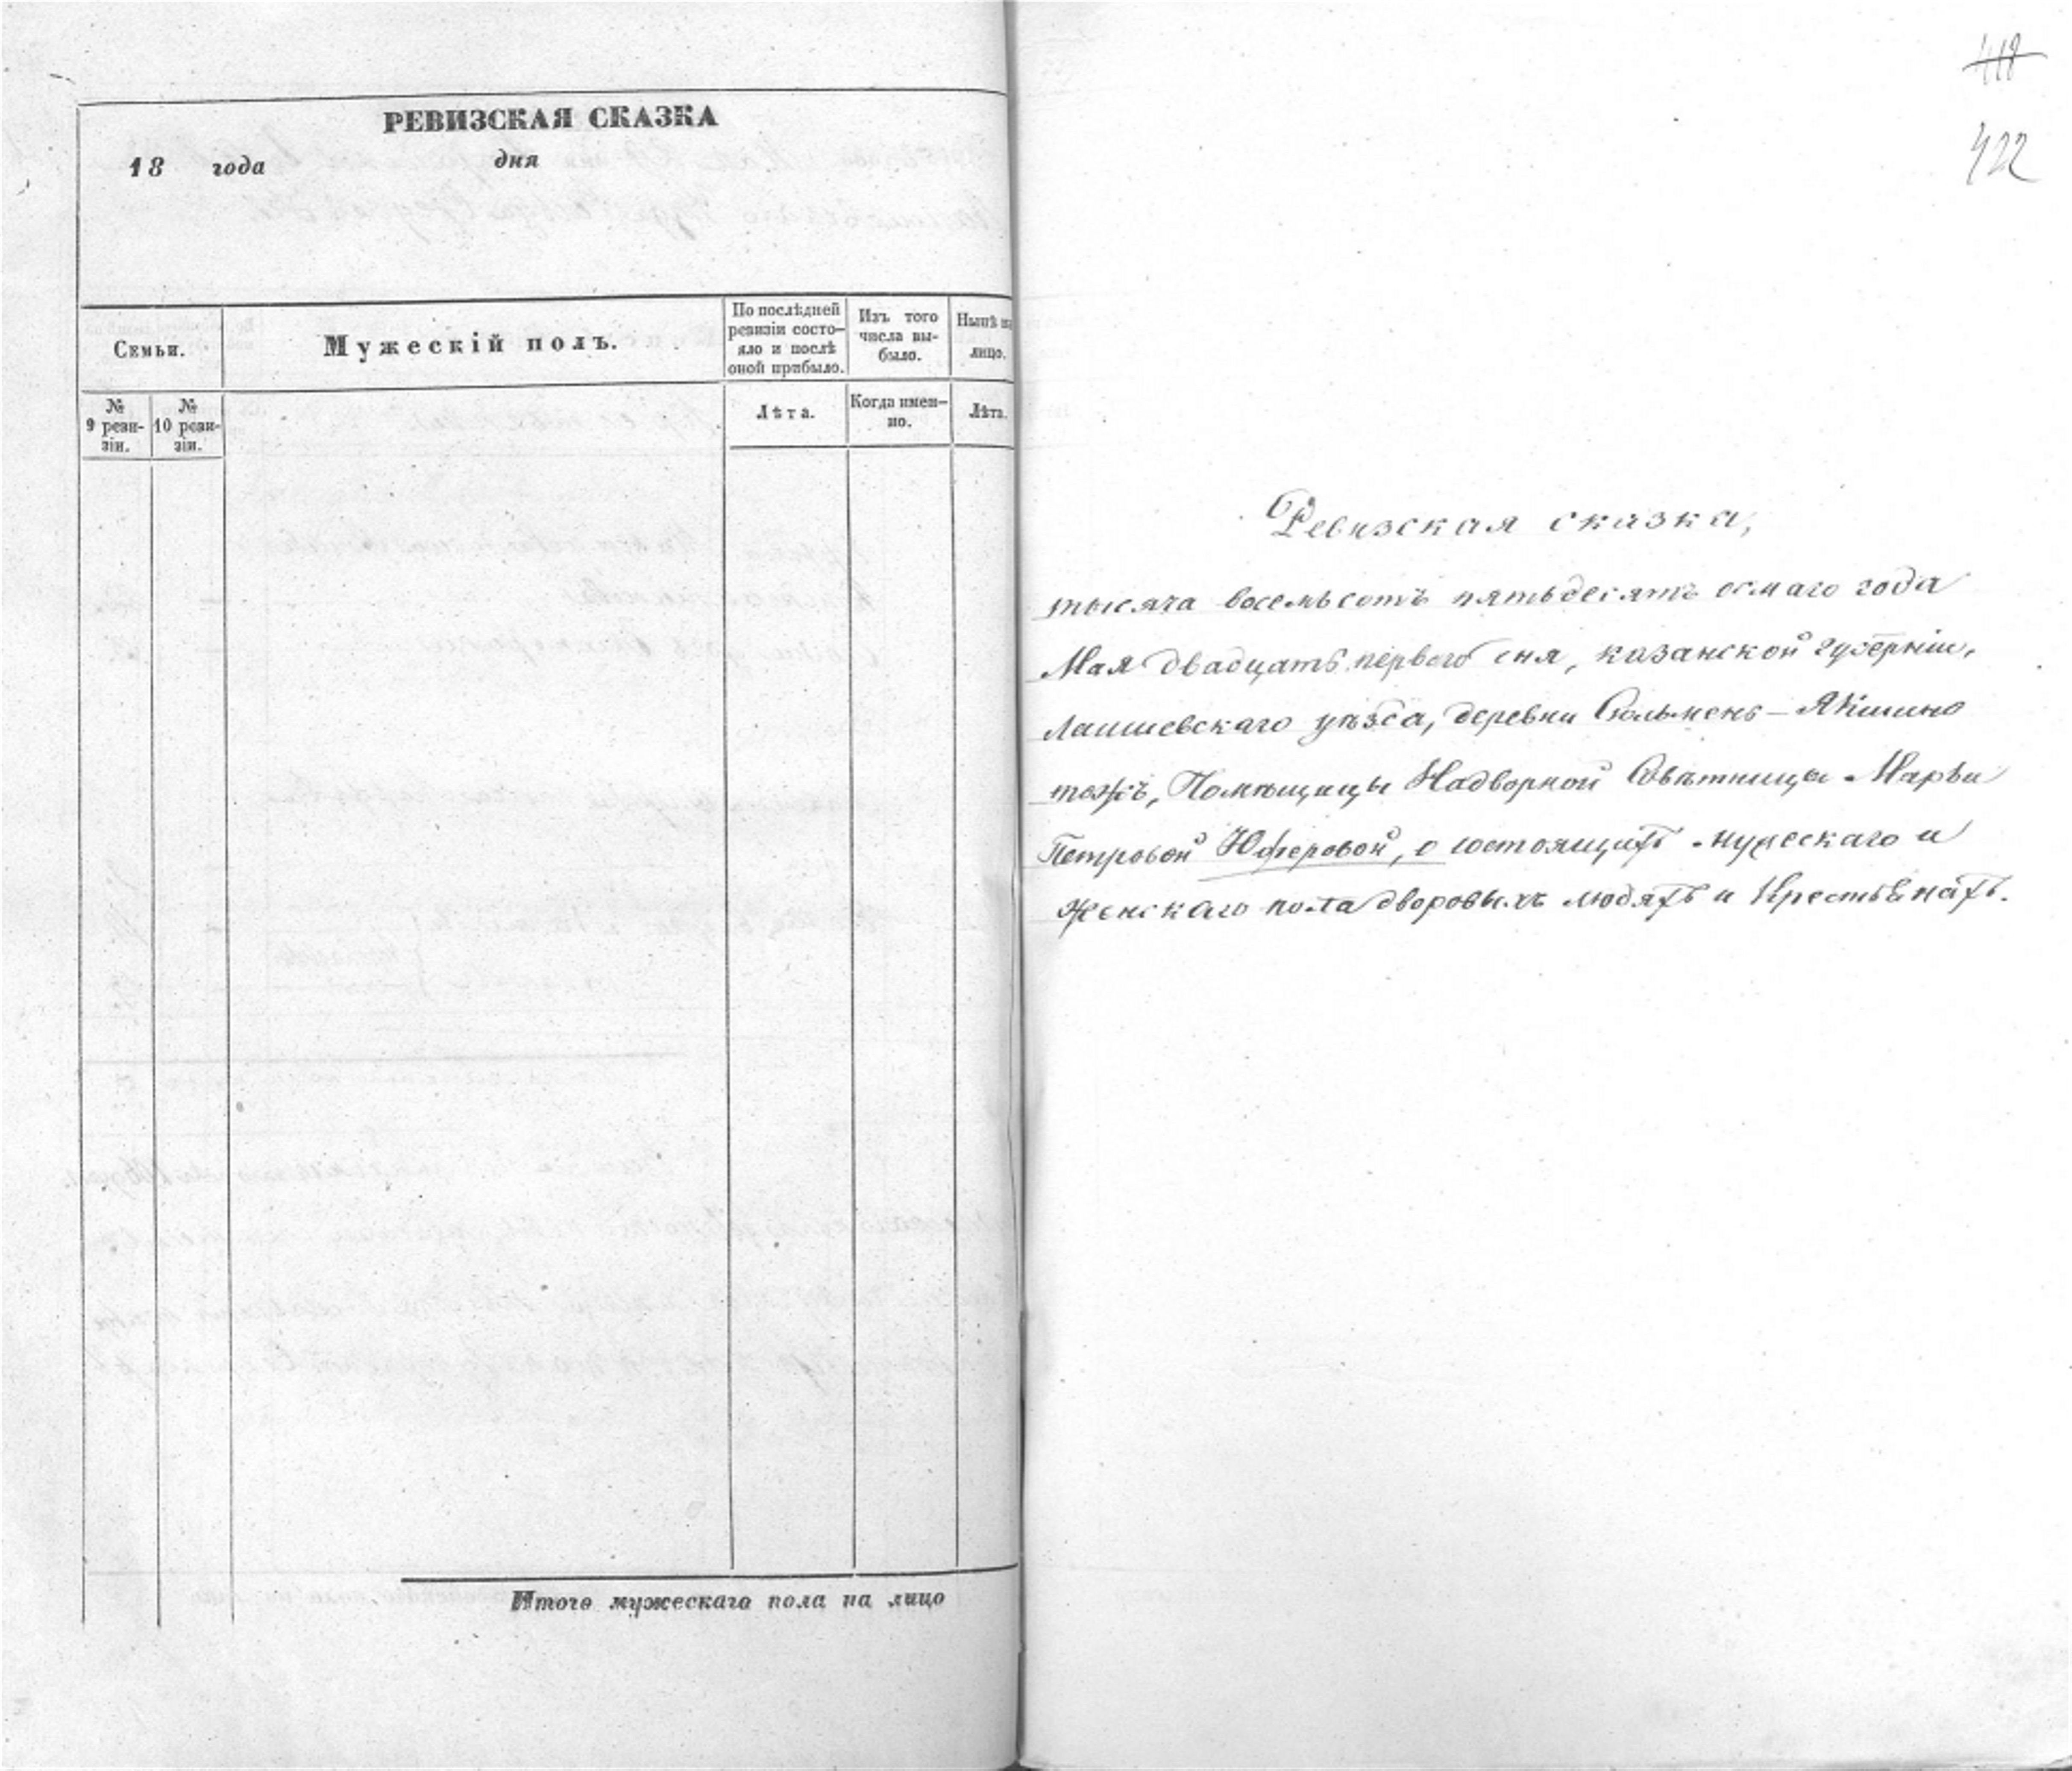 РЕВИЗСКАЯ СКАЗКА
18 года дня
Семьи.
Мужескій полъ.
По послѣдней
ревизіи состо-
яло и послѣ
оной прибыло.
Изъ того
числа вы-
было.
Нынѣ на
лицо.
№
9 реви-
зіи.
№
10 реви-
зіи.
Лѣта.
Когда имен-
но.
Лѣта.
Итого мужескаго пола на лицо
418
422
Ревизская сказка,
тысяча восемьсотъ пятьдесятъ осмаго года
Мая двадцать перваго дня, казанской губерніи,
Лаишевскаго уѣзда, деревни
тожъ, Помѣщицы Надворной Совѣтницы Марьи
Петровой Юферовой, о состоящихъ мужескаго и
женскаго пола дворовыхъ людяхъ и Крестьянахъ.